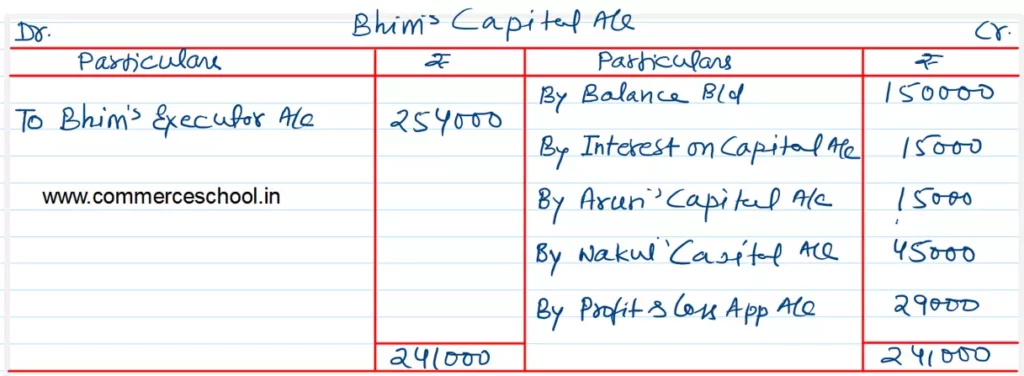 Bhim's Capital A/c
Dr. Cr.
Particulars ₹ Particulars ₹
By Balance B/d 150000
To Bhim's Executor A/c 254000
By Interest on Capital A/c 15000
www.commerceschool.in
By Arun's Capital A/c 15000
By Nakul's Capital A/c 45000
By Profit & Loss App A/c 29000
241000 241000